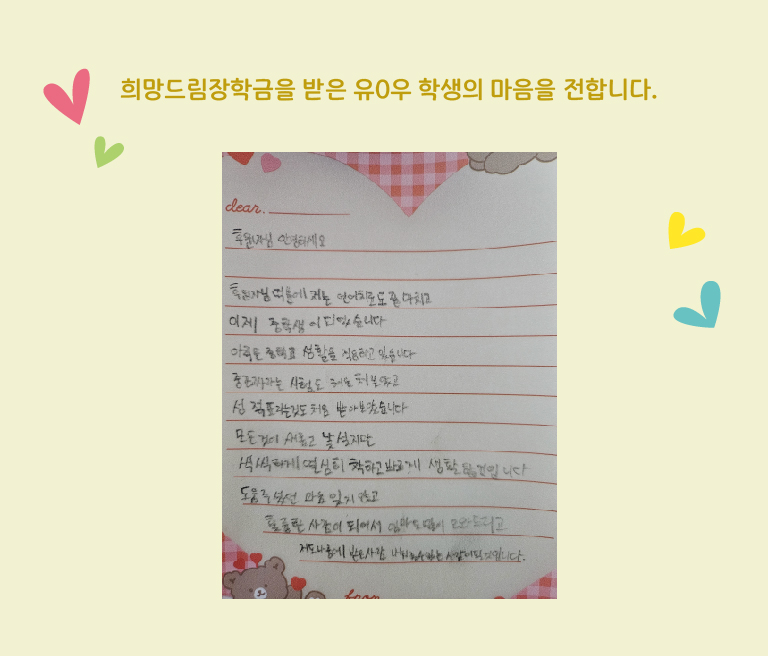 희망드림장학금을 받은 유0우 학생의 마음을 전합니다.
dear.
후원자님 안녕하세요
후원자님 때문에 저는 언어치료도 잘 마치고
이제 중학생이 되었습니다
아직은 중학교 생활을 적응하고 있습니다
중간고사라는 시험도 처음 쳐보았고
성적표라는것도 처음 받아보았습니다
모든것이 새롭고 낯설지만
씩씩하게 열심히 착하고 바르게 생활 할것입니다
도움주셨던 마음 잊지 않고
훌륭한 사람이 되어서 엄마
저도 나중에 사람 사람이 되겠습니다.
from